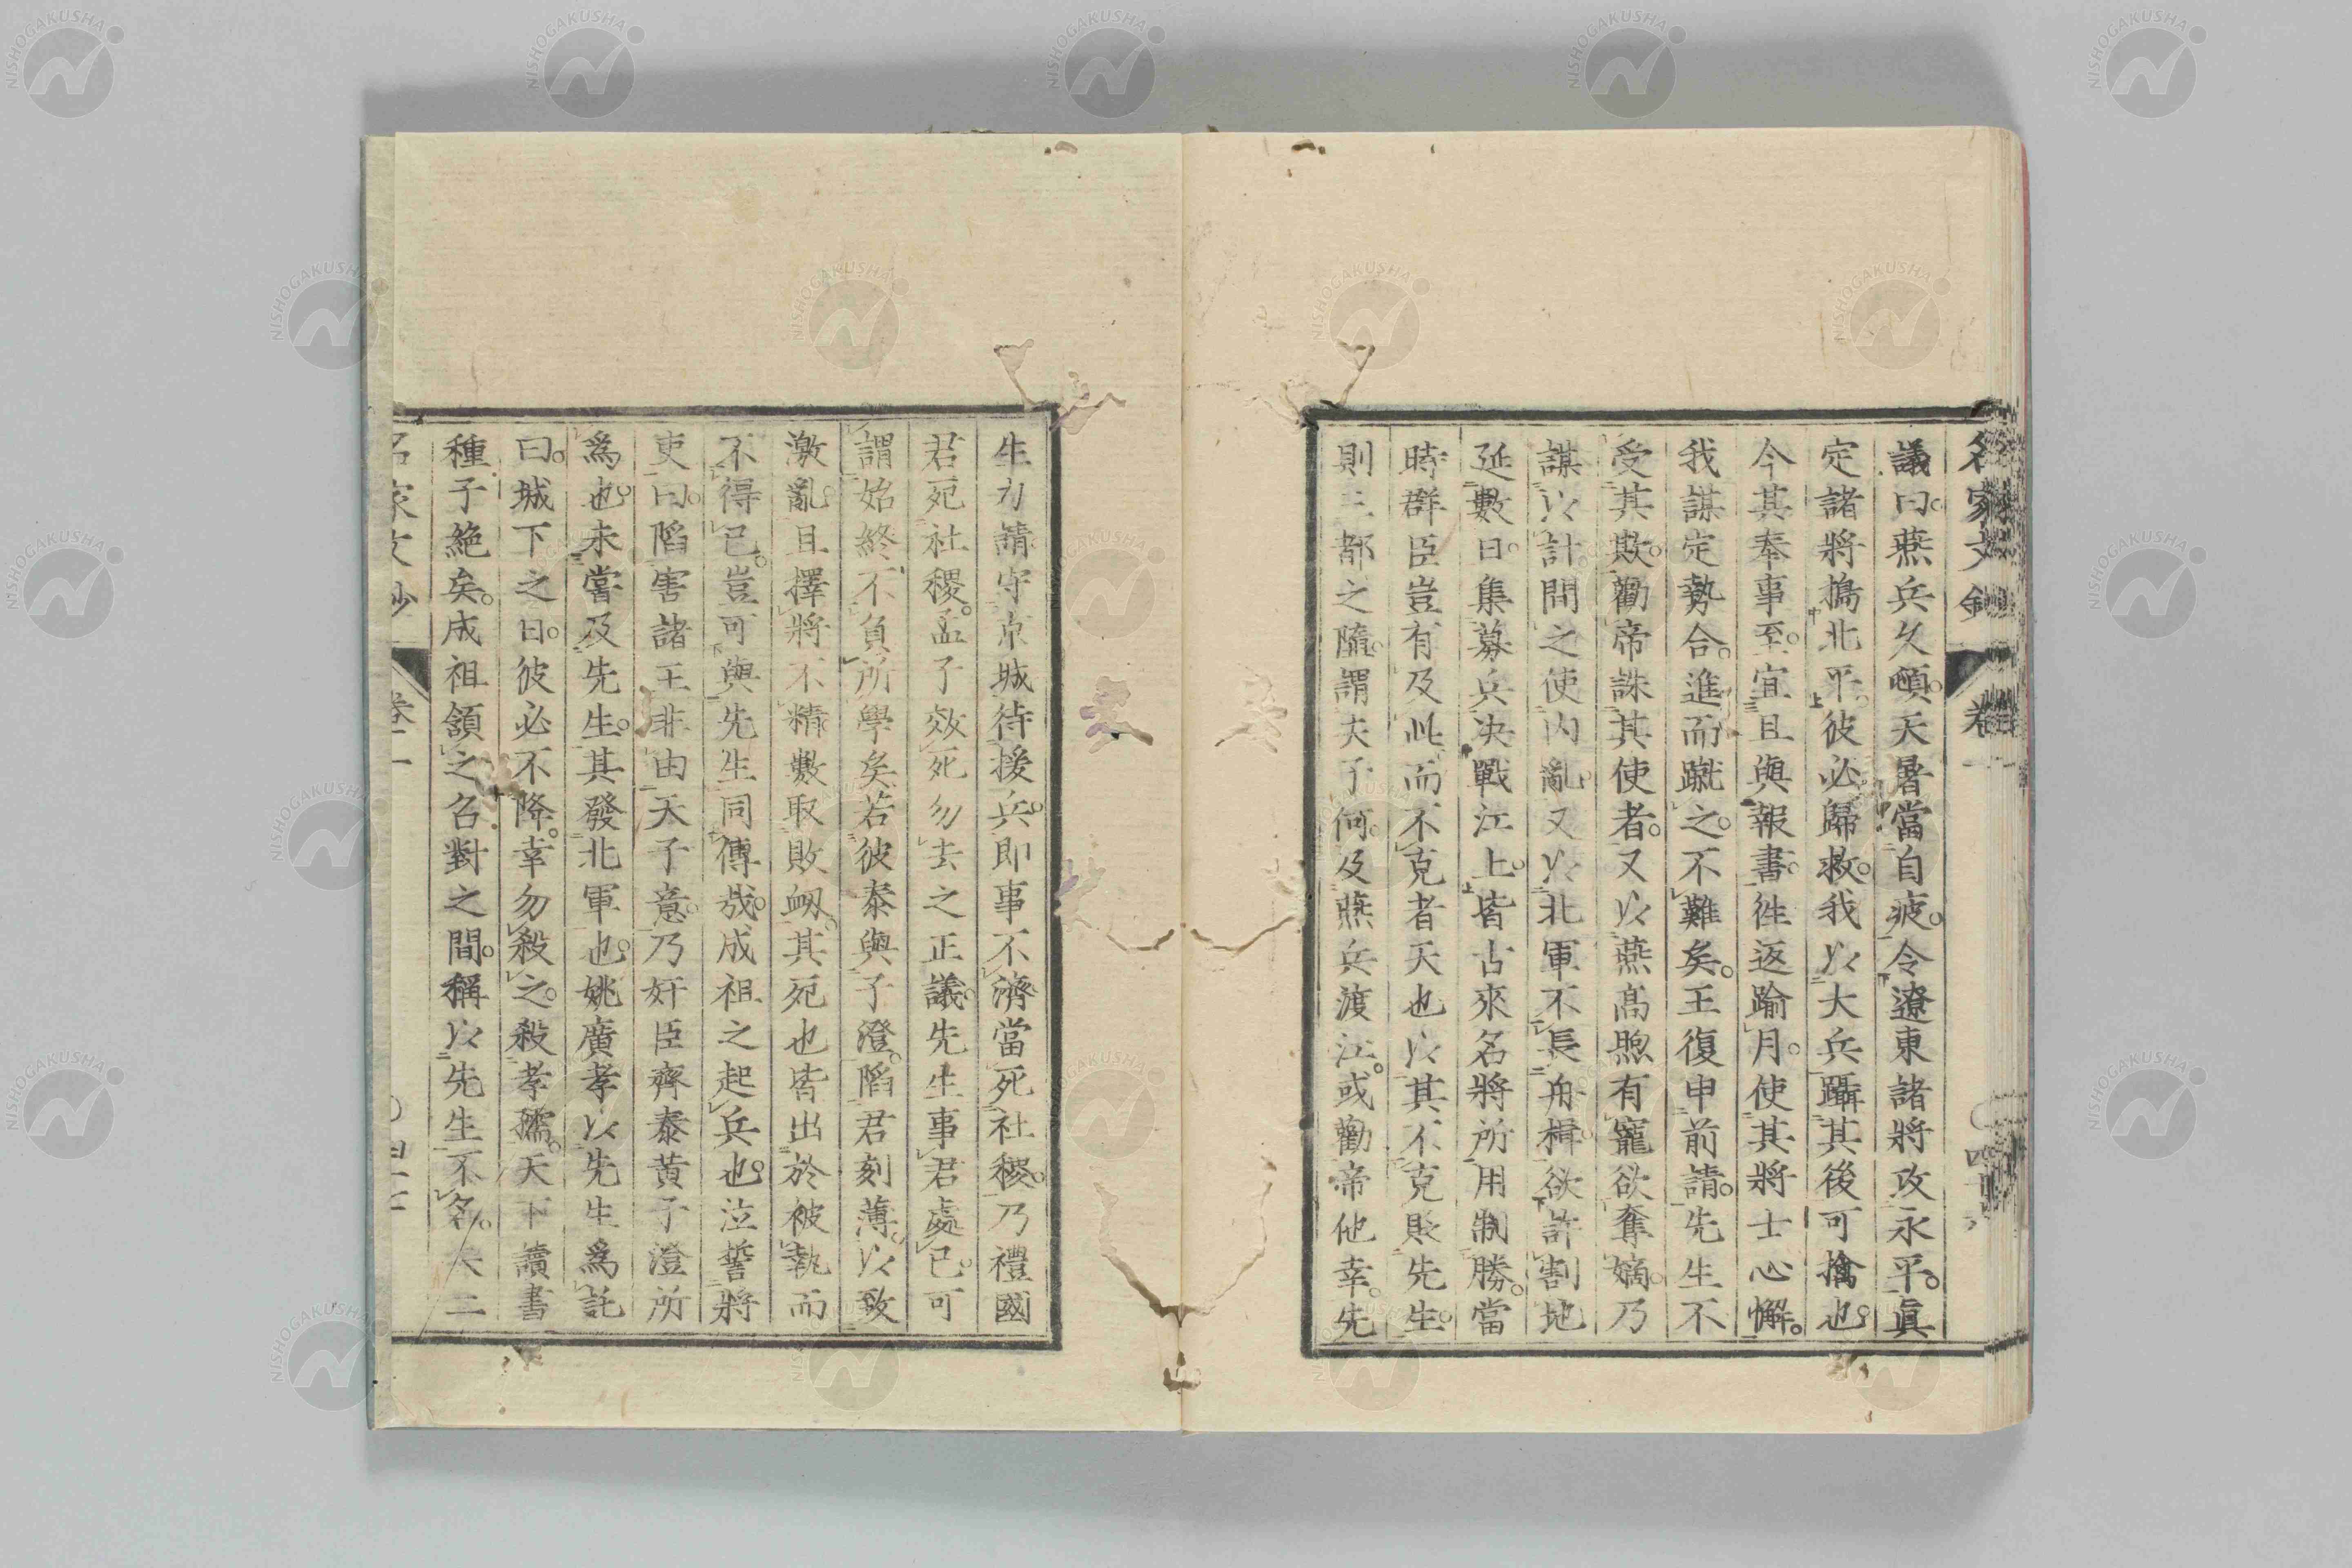 名家文鈔 卷一
議曰。燕兵久頓。天暑當自疲。令遼東諸將攻永平。眞
定諸將擣北平。彼必歸救。我以大兵躡其後可擒也。
今其奉事至。宜且與報書。往返踰月。使其將士心懈。
我謀定勢合。進而蹴之。不難矣。王復申前請。先生不
受其欺。勸帝誅其使者。又以燕高煦有寵欲奪嫡。乃
謀以計間之使内亂。又以北軍不長舟楫。欲許割地
延數日。集募兵决戰江上。皆古來名將所用制勝。當
時群臣豈有及此。而不克者天也。以其不克貶先生。
則三都之隳。謂夫子何。及燕兵渡江。或勸帝他幸。先
生力請守京城待援兵。即事不濟當死社稷。乃禮國
君死社稷。孟子效死勿去之正議。先生事君處已。可
謂始終不負所學矣。若彼泰與子澄。陷君刻薄。以致
激亂。且擇將不精。數取敗衄。其死也皆出於被執而
不得已。豈可與先生同傳哉。成祖之起兵也。泣誓將
吏曰。陷害諸王非由天子意。乃奸臣齊泰黄子澄所
爲也。未嘗及先生。其發北軍也。姚廣孝以先生爲託
曰。城下之日。彼必不降。幸勿殺之。殺孝孺。天下讀書
種子絶矣。成祖頷之。召對之間。稱以先生不名。夫二
名家文鈔 卷一